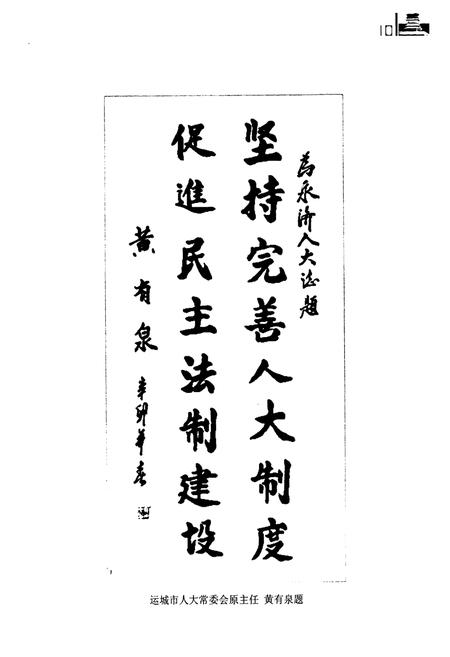 为永济人大志题
坚持完善人大制度
促進民主法制建设
黄有泉
辛卯年春
运城市人大常委会原主任 黄有泉题